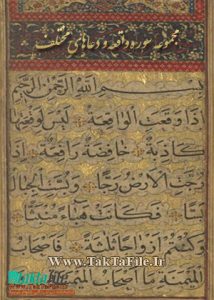 مجموعه سوره واقعه و دعاهای مختلف
بِسْمِ اللهِ الرَّحْمٰنِ الرَّحِيمِ
اِذَا وَقَعَتِ الْوَاقِعَةُ لَيْسَ لِوَقْعَتِهَا
كَاذِبَةٌ خَافِضَةٌ رَافِعَةٌ اِذَا
www.TakTaFile.Ir
رُجَّتِ الْاَرْضُ رَجًّا وَبُسَّتِ الْجِبَالُ
بَسًّا فَكَانَتْ هَبَاءً مُنْبَثًّا
وَكُنْتُمْ اَزْوَاجًا ثَلٰثَةً فَاَصْحَابُ
www.TakTaFile.Ir
الْمَيْمَنَةِ مَا اَصْحَابُ الْمَيْمَنَةِ
Taktafile